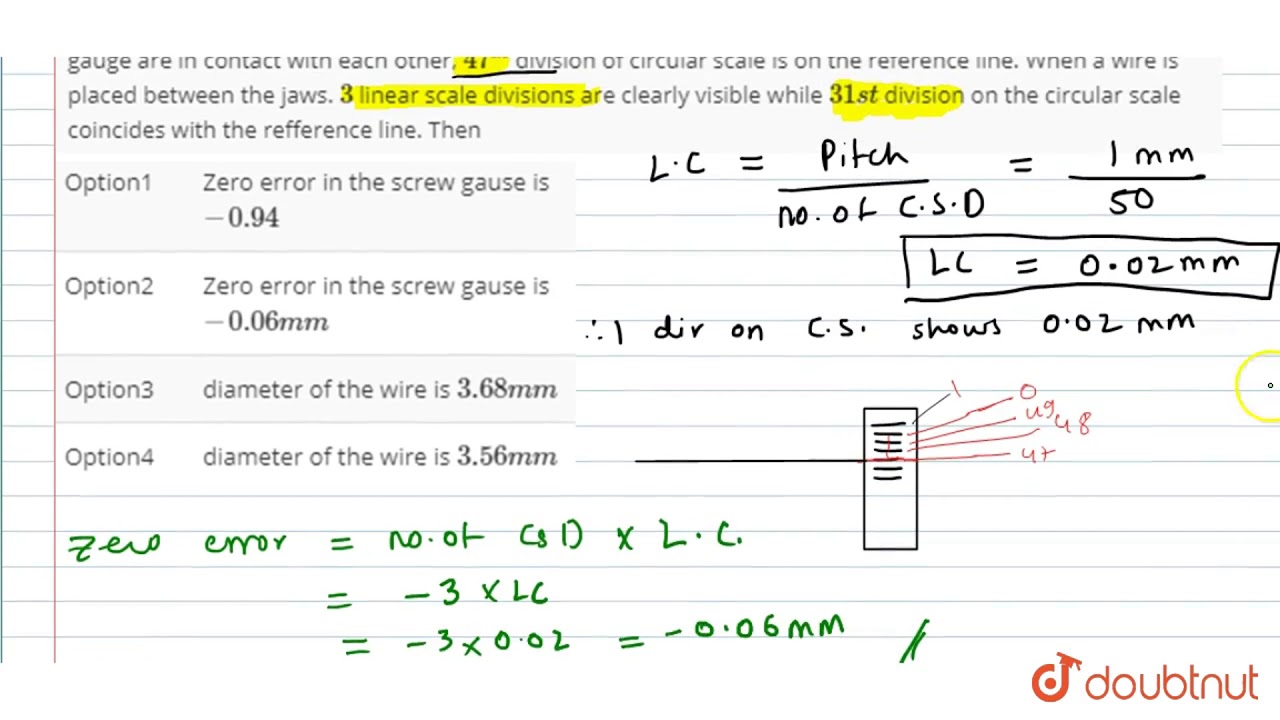 gauge are in contact with each other, 47th division of circular scale is on the reference line. When a wire is
placed between the jaws. 3 linear scale divisions are clearly visible while 31st division on the circular scale
coincides with the refference line. Then
Option1 Zero error in the screw gause is
−0.94
Option2 Zero error in the screw gause is
−0.06mm
Option3 diameter of the wire is 3.68mm
Option4 diameter of the wire is 3.56mm
L.C = Pitch / no. of C.S.D = 1 mm / 50
LC = 0.02 mm
∴ 1 div on C.S. shows 0.02 mm
1
0
49
48
47
Zero error = no. of CSD × L.C.
= −3 × LC
= −3 × 0.02 = −0.06 mm //
doubtnut